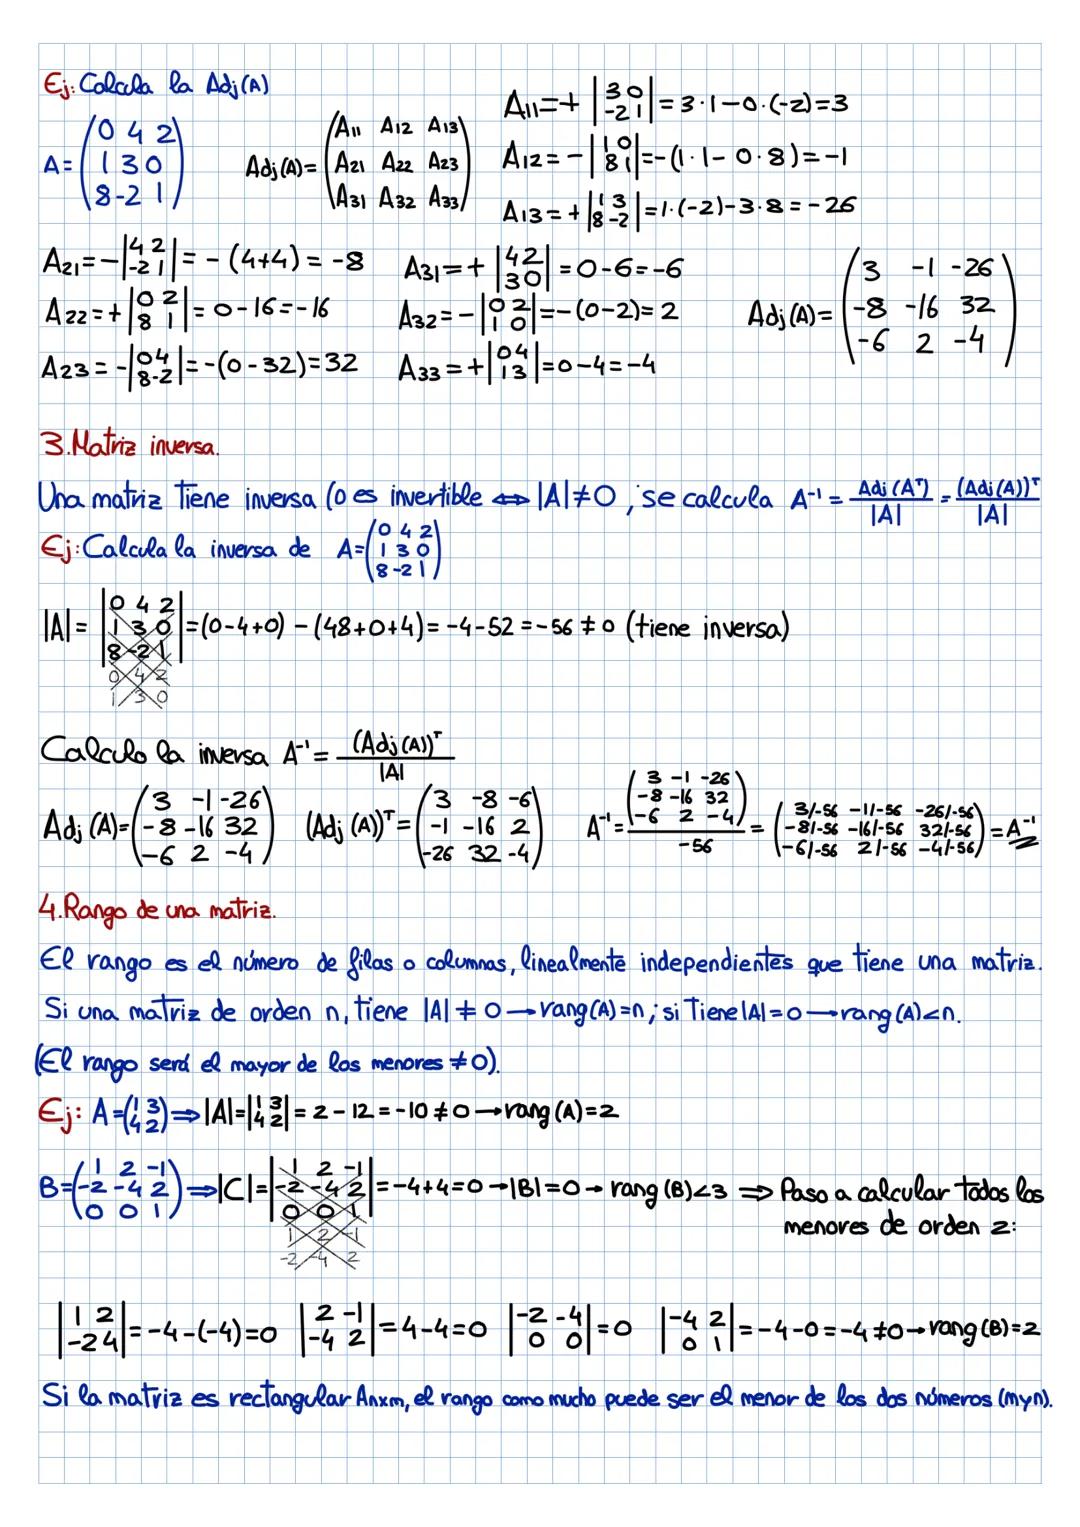 Ej: Calcula la Adj(A)
A = (0 4 2 / 1 3 0 / 8 -2 1)
Adj(A) = (A11 A12 A13 / A21 A22 A23 / A31 A32 A33)
A11 = + |3 0 / -2 1| = 3·1-0·(-2)=3
A12 = - |1 0 / 8 1| = -(1·1-0·8) = -1
A13 = + |1 3 / 8 -2| = 1·(-2)-3·8 = -26
A21 = - |4 2 / -2 1| = -(4+4) = -8
A22 = + |0 2 / 8 1| = 0-16 = -16
A23 = - |0 4 / 8 -2| = -(0-32) = 32
A31 = + |4 2 / 3 0| = 0-6 = -6
A32 = - |0 2 / 1 0| = -(0-2) = 2
A33 = + |0 4 / 1 3| = 0-4 = -4
Adj(A) = (3 -1 -26 / -8 -16 32 / -6 2 -4)
3. Matriz inversa.
Una matriz tiene inversa (o es invertible ⇔ |A|≠0, se calcula A⁻¹ = Adj(Aᵀ)/|A| = (Adj(A))ᵀ/|A|
Ej: Calcula la inversa de A = (0 4 2 / 1 3 0 / 8 -2 1)
|A| = |0 4 2 / 1 3 0 / 8 -2 1| = (0-4+0) - (48+0+4) = -4-52 = -56 ≠ 0 (tiene inversa)
0 4 2
1 3 0
Calculo la inversa A⁻¹ = (Adj(A))ᵀ/|A|
Adj(A) = (3 -1 -26 / -8 -16 32 / -6 2 -4) (Adj(A))ᵀ = (3 -8 -6 / -1 -16 2 / -26 32 -4) A⁻¹ = (3 -1 -26 / -8 -16 32 / -6 2 -4)/-56 = (3/-56 -1/-56 -26/-56 / -8/-56 -16/-56 32/-56 / -6/-56 2/-56 -4/-56) = A⁻¹
4. Rango de una matriz.
El rango es el número de filas o columnas, linealmente independientes que tiene una matriz.
Si una matriz de orden n, tiene |A| ≠ 0 → rang(A)=n; si tiene |A|=0 → rang(A)<n.
(El rango será el mayor de los menores ≠0).
Ej: A = (1 3 / 4 2) ⇒ |A| = |1 3 / 4 2| = 2-12 = -10 ≠ 0 → rang(A)=2
B = (1 2 -1 / -2 -4 2 / 0 0 1) ⇒ |C| = |1 2 -1 / -2 -4 2 / 0 0 1| = -4+4=0 → |B|=0 → rang(B)<3 ⇒ Paso a calcular todos los
menores de orden 2:
1 2 -1
-2 -4 2
|1 2 / -2 4| = -4-(-4)=0 |2 -1 / -4 2| = 4-4=0 |-2 -4 / 0 0| = 0 |-4 2 / 0 1| = -4-0=-4 ≠0 → rang(B)=2
Si la matriz es rectangular Anxm, el rango como mucho puede ser el menor de los dos números (m y n).